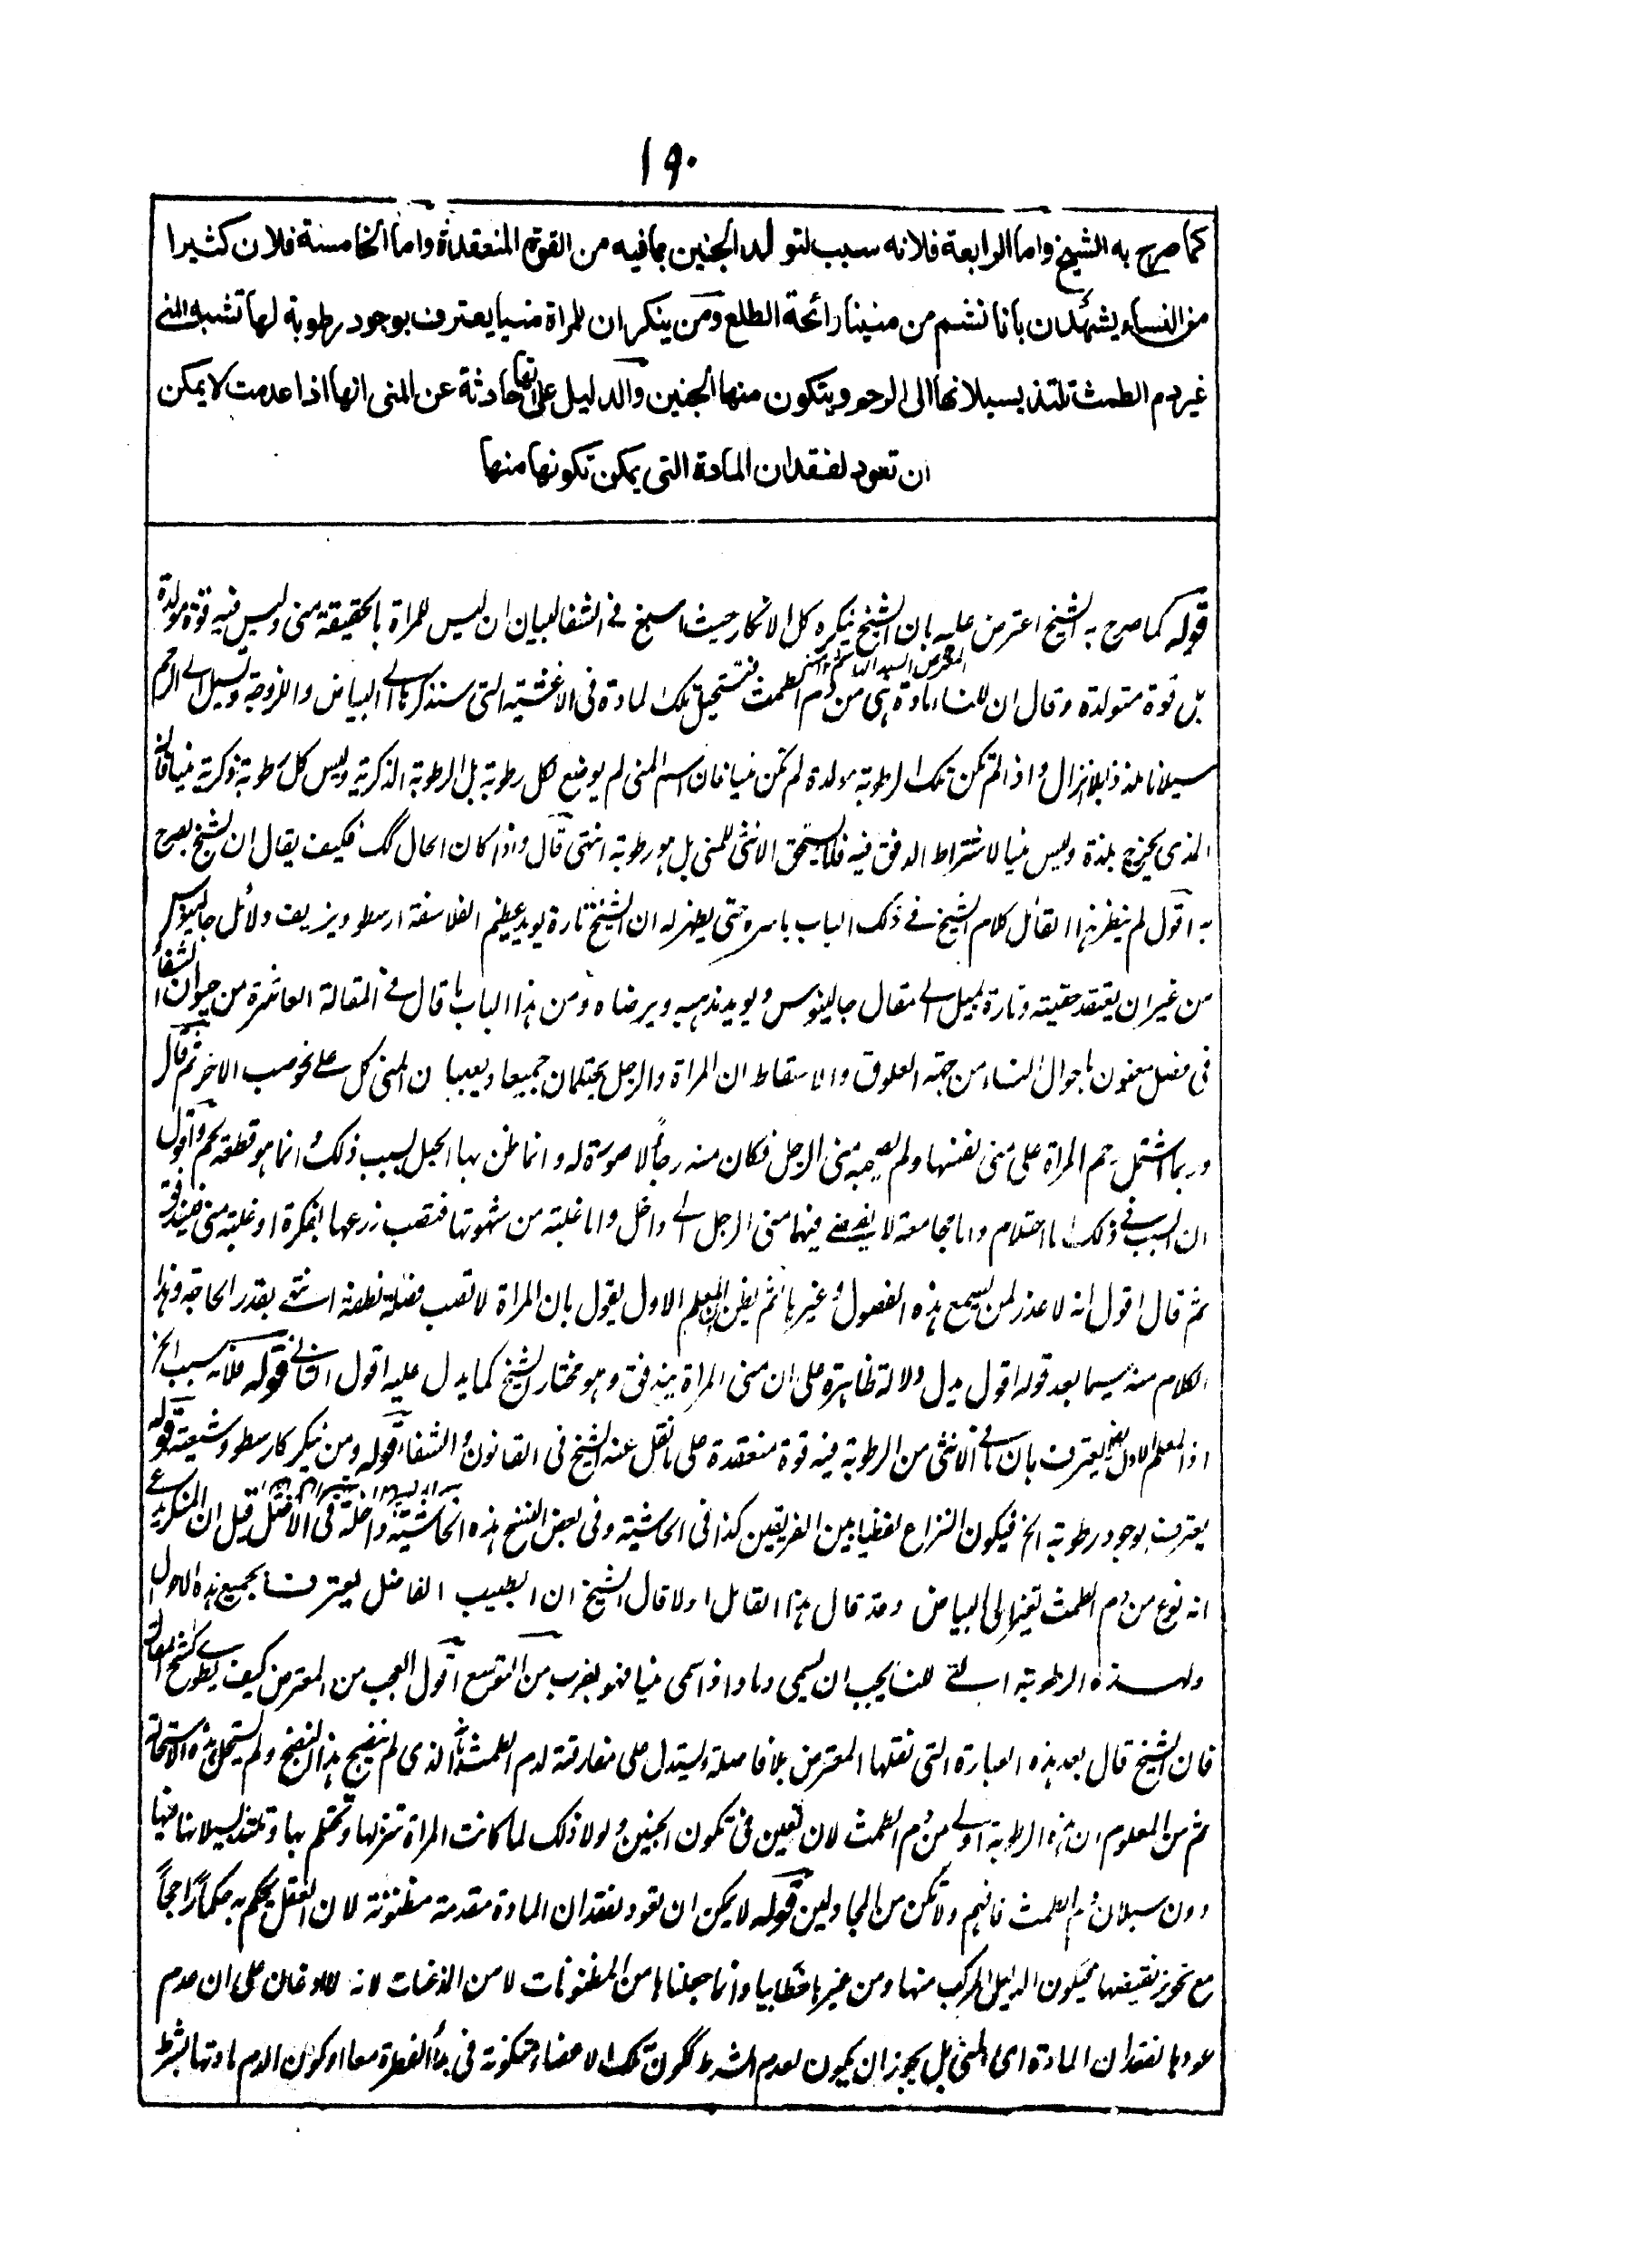 ١٩٠
كما صرح به الشيخ واما الرابعة فلانه سبب لتولد الجنين بما فيه من القوة المنعقدة واما الخامسة فلان كثيرا
من النساء يشهدن بانا نشم من منينا رائحة الطلع ومن ينكر ان للمراة منيا يعترف بوجود رطوبة لها تشبه المنى
غير دم الطمث تلتذ بسيلانها الى الرحم ويتكون منها الجنين والدليل على انها حادثة عن المنى انها اذا عدمت لا يمكن
ان تعود لفقدان المادة التى يمكن تكونها منها
قوله كما صرح به الشيخ اعترض عليه بان الشيخ ينكره كل الانكار حيث اسبغ فى الشفا لبيان ان ليس للمراة بالحقيقة منى وليس فيه قوة مولدة
بل قوة متولدة وقال ان للنساء مادة هى من دم الطمث فتستحيل تلك المادة فى الاغشية التى سنذكرها الى البياض واللزوجة وتسيل الى الرحم
سيلانا ملذذا بلا انزال واذا لم تكن تلك الرطوبة مولدة لم تكن منيا فان اسم المنى لم يوضع لكل رطوبة بل الرطوبة الذكرية وليس كل رطوبة ذكرية منيا فانه
الذى يخرج بلذة وليس منيا لاشتراط الدفق فيه فلا يستحق الانثى للمنى بل هو رطوبة انتهى قال واذا كان الحال كك فكيف يقال ان الشيخ يصرح
به اقول لم ينظر هذا القائل كلام الشيخ فى ذلك الباب باسره حتى يظهر له ان الشيخ تارة يويد عظيم الفلاسفة ارسطو ويزيف دلائل جالينوس
من غير ان يعتقد حقيته وتارة يميل الى مقال جالينوس ويويد مذهبه ويرضاه ومن هذا الباب ما قال فى المقالة العاشرة من حيوان الشفاء
فى فصل معنون باحوال النساء من جهة العلوق والاسقاط ان المراة والرجل يحتلمان جميعا ويصبان المنى كل على نحو صب الاخر ثم قال
وربما اشتمل رحم المراة على منى نفسها ولم يصبه منى الرجل فكان منه رجأ لا صورة له وانما ظن بها الحبل بسبب ذلك وانما هو قطعة لحم واقول
ان السبب فى ذلك اما احتلام واما مجامعة لا يفضى فيها منى الرجل الى داخل واما غلبة من شهوتها فتصب زرعها بفكرة او غلبة منى فيندفق
ثم قال اقول انه لا عذر لمن يسمع هذه الفصول وغيرها ثم يظن ان المعلم الاول يقول بان المراة لا تصب فضلة نطفة انتهى بقدر الحاجة وهذا
الكلام منه سيما بعد قوله اقول يدل دلالة ظاهرة على ان منى المراة يندفق وهو مختار الشيخ كما يدل عليه اقول الثانى قوله فلانه سبب الخ
اذ المعلم الاول ايضا يعترف بان ما فى الانثى من الرطوبة فيه قوة منعقدة على ما نقل عنه الشيخ فى القانون والشفاء قوله ومن ينكر كارسطو وشيعته قوله
يعترف بوجود رطوبة الخ فيكون النزاع لفظيا بين الفريقين كذا فى الحاشية وفى بعض النسخ هذه الحاشية داخلة فى الاصل قيل ان المنكر يدعى
انه نوع من دم الطمث تغير الى البياض وقد قال هذا القائل اولا قال الشيخ ان الطبيب الفاضل يعترف بجميع هذه الاحوال
ولهذه الرطوبة التى للنساء يجب ان تسمى دما واذا سمى منيا فهو بضرب من التوسع اقول العجب من المعترض كيف يطوى كشح المقال
فان الشيخ قال بعد هذه العبارة التى نقلها المعترض بلا فاصلة ليستدل على مفارقته لدم الطمث الذى لم ينضج هذا النضج ولم يستحل هذه الاستحالة
ثم من المعلوم ان هذه الرطوبة اولى من دم الطمث لان تعين فى تكون الجنين ولولا ذلك لما كانت المراة تنزلها وتحتلم بها وتلتذ بسيلانها فيها
دون سيلان دم الطمث فافهم ولا تكن من المجادلين قوله لا يمكن ان تعود لفقدان المادة مقدمة مظنونة لان العقل يحكم به حكما راجحا
مع تجويز نقيضها فيكون الدليل المركب منها ومن غيرها خطابيا وانما جعلناها من المظنونات لا من الاذعانات لانه لا اذعان على ان عدم
عودها لفقدان المادة اى المنى بل يجوز ان يكون لعدم الشرط ككون تلك الاعضاء متكونة فى بدأ الفطرة معا او كون الدم مادتها بشرط